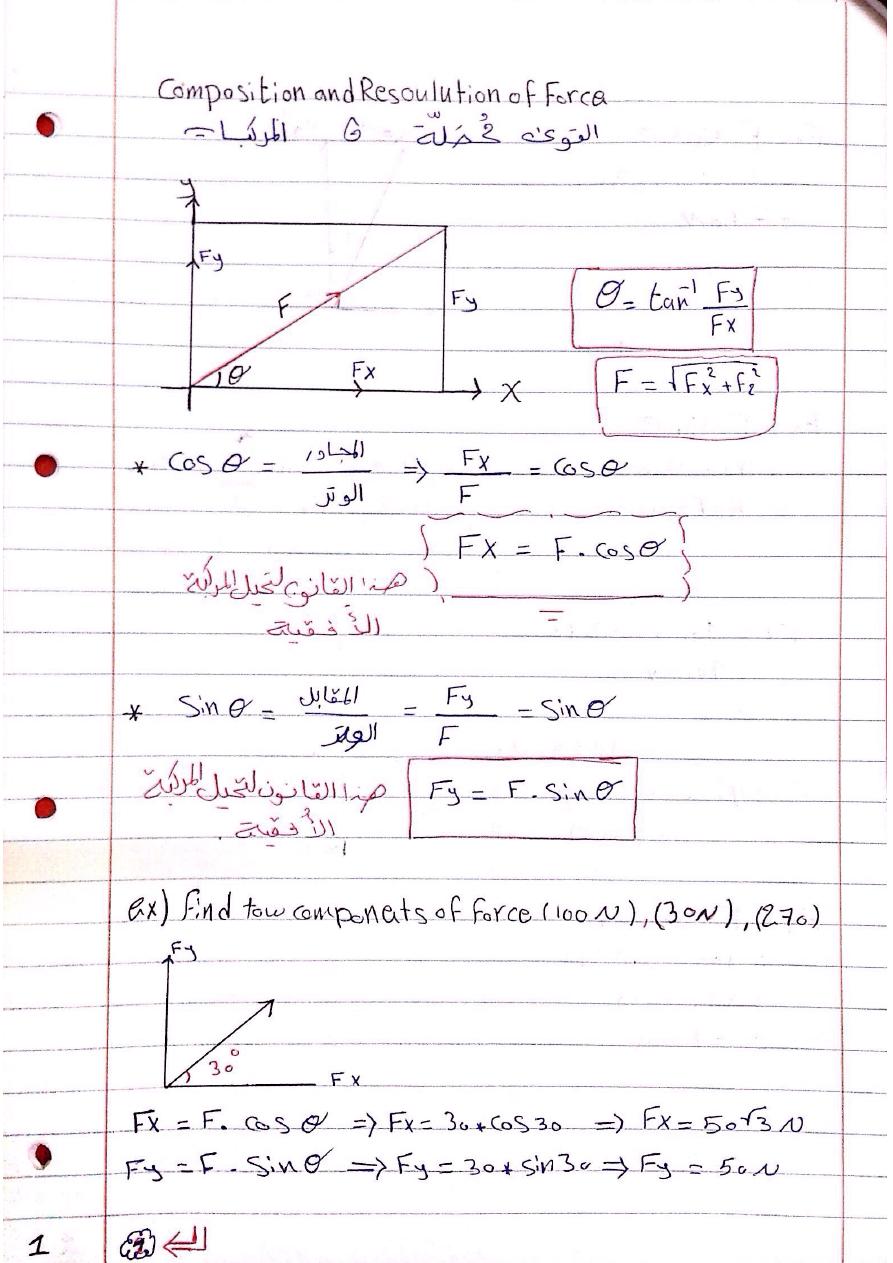 Composition and Resoulution of Force
القوى مُحَصّلة و المركبات
y
Fy
F
Fy
θ
Fx
X
θ = tan⁻¹ Fy/Fx
F = √Fx² + f₂²
* Cos θ = المجاور/الوتر ⇒ Fx/F = Cos θ
Fx = F. cos θ
هذا القانون لتحيل المركبة
الأفقية
* Sin θ = المقابل/الوتر = Fy/F = Sin θ
هذا القانون لتحيل المركبة
Fy = F. Sin θ
الأفقية.
ex) find tow componets of force (100 N), (30N), (270)
Fy
30°
Fx
Fx = F. cos θ ⇒ Fx = 30*cos30 ⇒ Fx = 50√3 N
Fy = F. Sin θ ⇒ Fy = 30*sin30 ⇒ Fy = 50 N
1